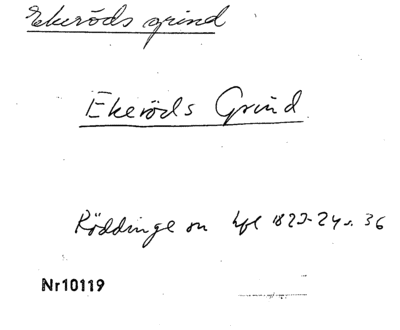 Ekeröds grind
Ekeröds Grind
Röddinge sn hfl 1823-24 s. 36
Nr10119